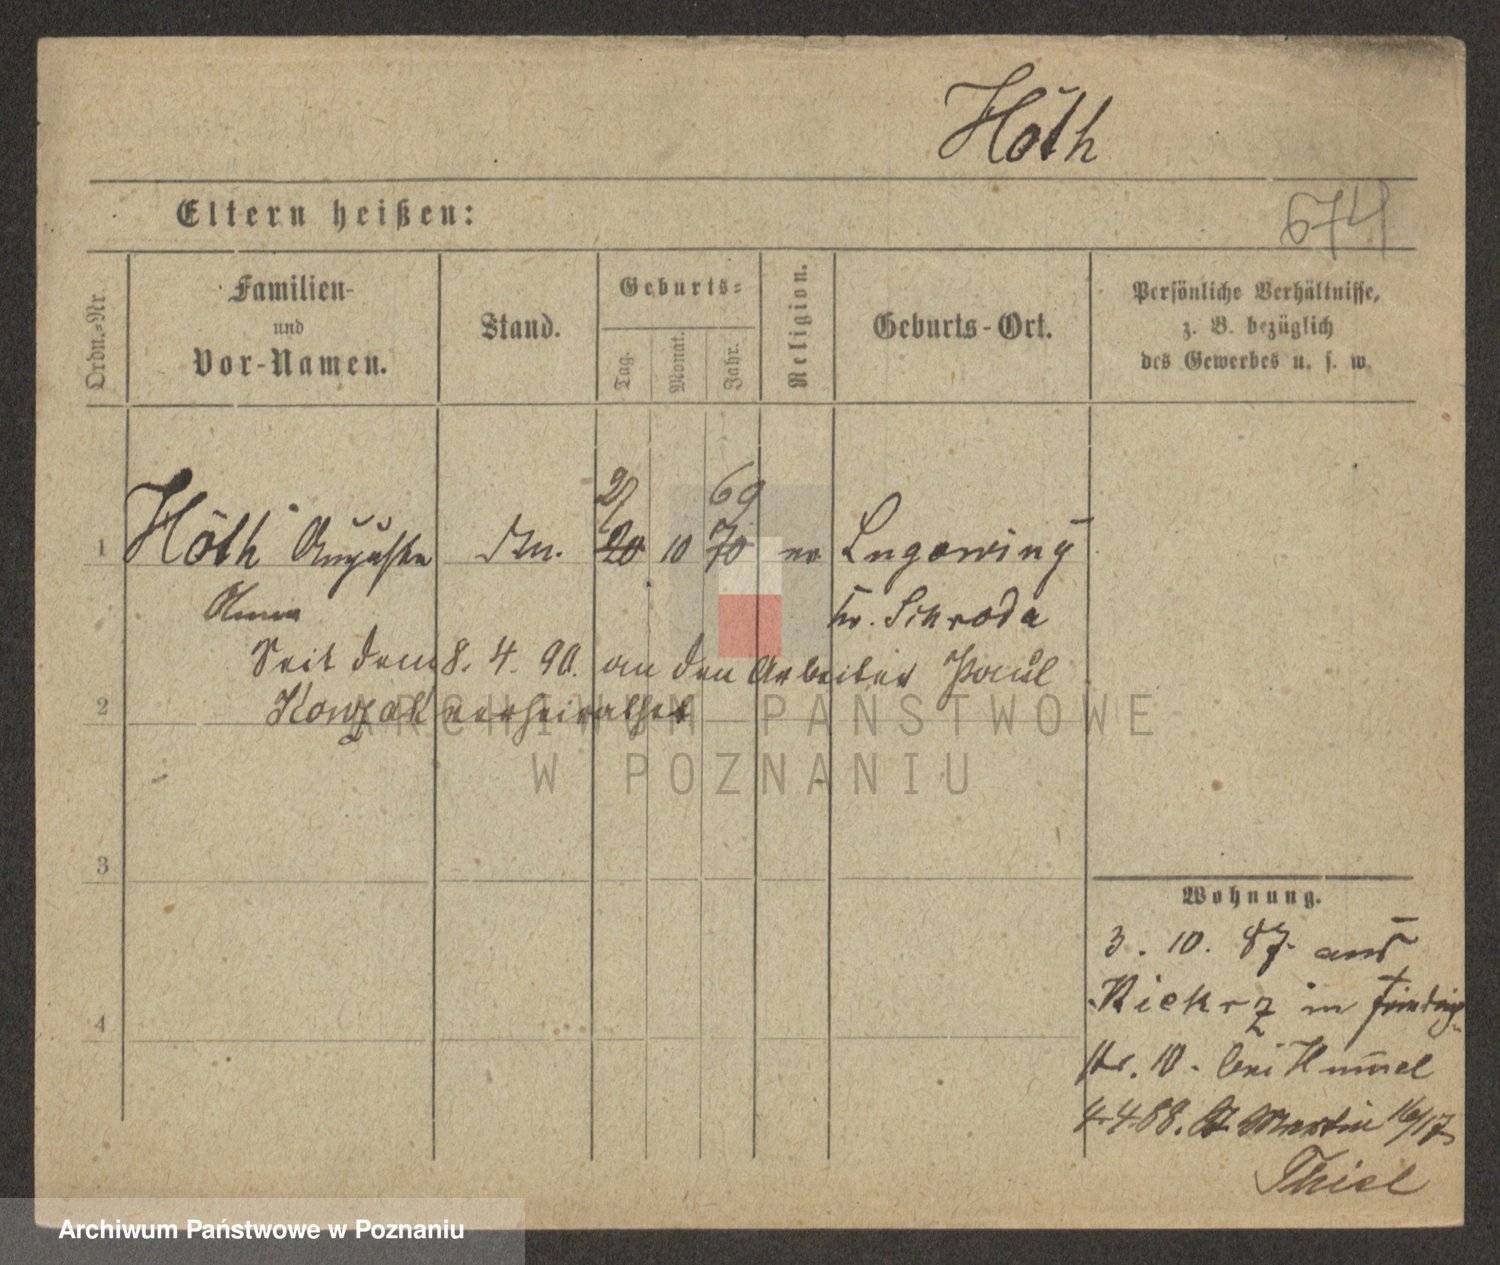 Höth
Eltern heißen:
674
Ordn.-Nr.
Familien-
und
Vor-Namen.
Stand.
Geburts-
Tag.
Monat.
Jahr.
Religion.
Geburts-Ort.
Persönliche Verhältnisse,
z. B. bezüglich
des Gewerbes u. s. w.
27 69
1 Höth Auguste 20 10 70 ev
Anna Kr. Schroda
Seit dem 8. 4. 90. an den Arbeiter Paul
2 verheirathet
3
4
Wohnung.
3. 10. 87. aus
Kiekrz in
str. 10. bei Hummel
4.4.88. St Martin 16/17
Thiel
ARCHIWUM PAŃSTWOWE
W POZNANIU
Archiwum Państwowe w Poznaniu